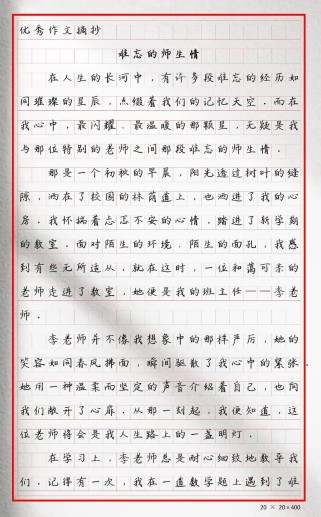 优秀作文摘抄
难忘的师生情
在人生的长河中，有许多段难忘的经历如
同璀璨的星辰，点缀着我们的记忆天空。而在
我心中，最闪耀、最温暖的那颗星，无疑是我
与那位特别的老师之间那段难忘的师生情。
那是一个初秋的早晨，阳光透过树叶的缝
隙，洒在了校园的林荫道上，也洒进了我的心
房。我怀揣着忐忑不安的心情，踏进了新学期
的教室。面对陌生的环境、陌生的面孔，我感
到有些无所适从。就在这时，一位和蔼可亲的
老师走进了教室，她便是我的班主任——李老
师。
李老师并不像我想象中的那样严厉，她的
笑容如同春风拂面，瞬间驱散了我心中的紧张。
她用一种温柔而坚定的声音介绍着自己，也向
我们敞开了心扉。从那一刻起，我便知道，这
位老师将会是我人生路上的一盏明灯。
在学习上，李老师总是耐心细致地教导我
们。记得有一次，我在一道数学题上遇到了难
20 × 20 = 400